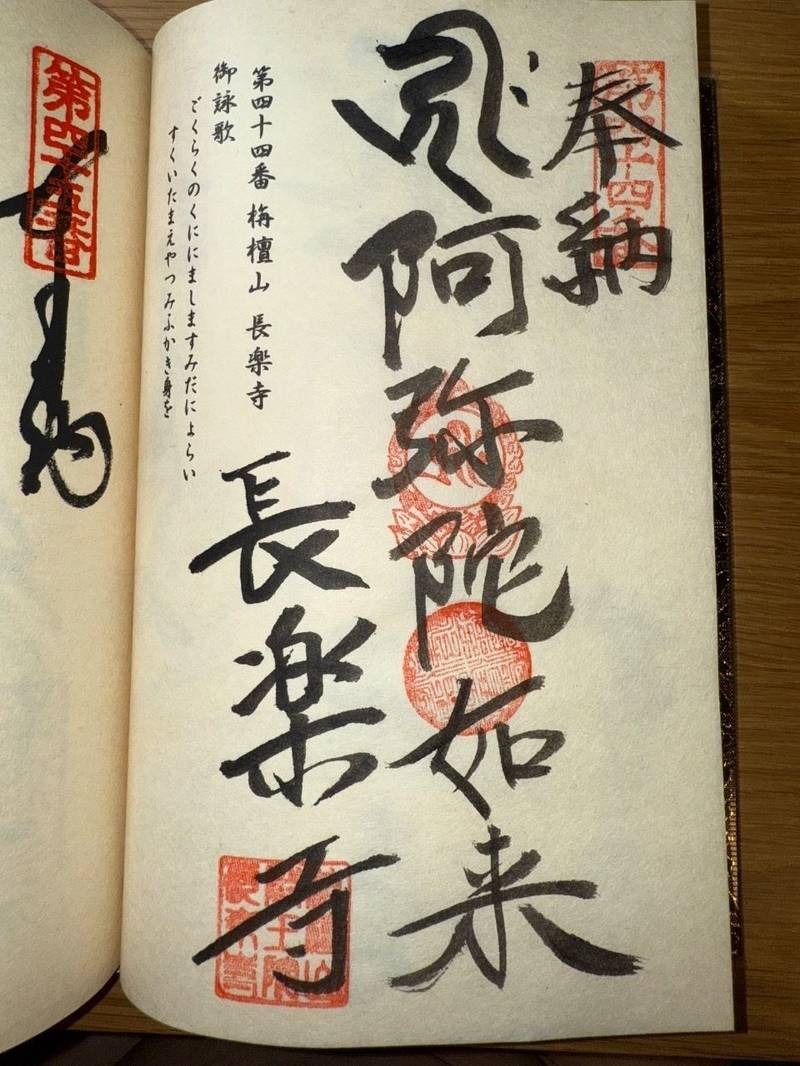 第四十四番
奉納
阿弥陀如来
長楽寺
第四十四番 栴檀山 長楽寺
御詠歌
ごくらくのくににましますみだによらい
すくいたまえやつみふかき身を
第四十五番